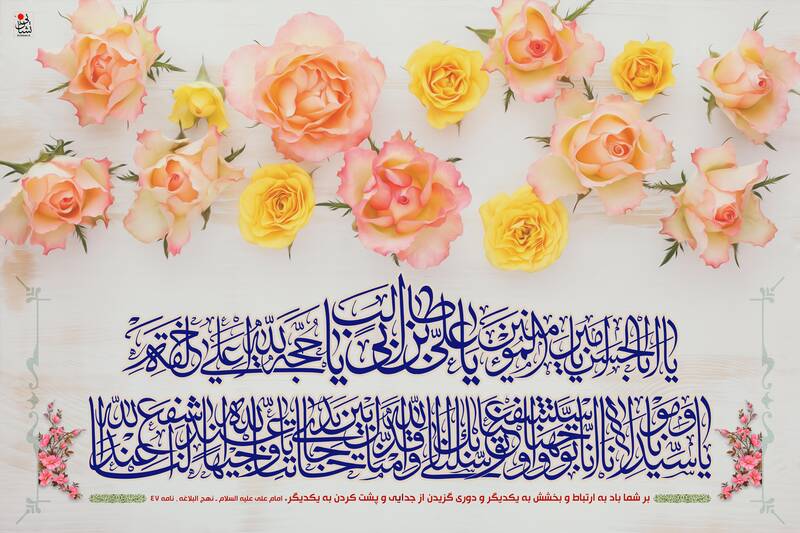 یا اباالحسن یا امیرالمؤمنین یا علی بن ابی طالب یا حجة الله علی خلقه
یا سیدنا و مولانا انا توجهنا و استشفعنا و توسلنا بک الی الله و قدمناک بین یدی حاجاتنا یا وجیها عند الله اشفع لنا عند الله
بر شما باد به ارتباط و بخشش به یکدیگر و دوری گزیدن از جدایی و پشت کردن به یکدیگر. امام علی علیه السلام ـ نهج البلاغه، نامه ۴۷